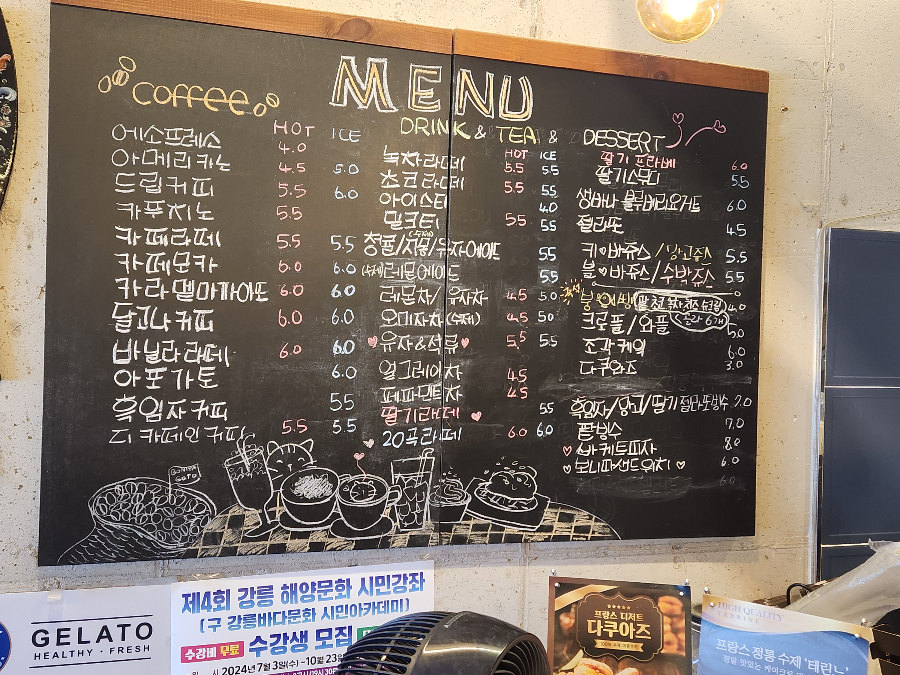 MENU
coffee
HOT ICE
에소프레스 4.0
아메리카노 4.5 5.0
드립커피 5.5 6.0
카푸치노 5.5
카페라떼 5.5 5.5
카페모카 6.0 6.0
카라멜마끼아또 6.0 6.0
달고나커피 6.0 6.0
바닐라라떼 6.0 6.0
아포가토 6.0
흑임자커피 5.5
디카페인커피 5.5 5.5
BONIPA
DRINK & TEA &
HOT ICE
녹차라떼 5.5 5.5
초코라떼 5.5 5.5
아이스티 4.0
밀크티 5.5 5.5
청귤/자몽/유자에이드 5.5
(수제)레몬에이드 5.5
레몬차/유자차 4.5 5.0
오미자차(수제) 4.5 5.0
유자&석류 5.5 5.5
얼그레이차 4.5
페퍼민트차 4.5
딸기라떼 5.5
20곡라떼 6.0 6.0
DESSERT
딸기 프라페 6.0
딸기스무디 5.5
생바나 블루베리요거트 6.0
젤라또 4.5
키위바쥬스/망고쥬스 5.5
블바쥬스/수박쥬스 5.5
붕어빵 4.0
크로플/와플 5.0
조각케익 6.0
다쿠아즈 3.0
흑임자/망고/딸기 젤라또빙수 7.0
팥빙수 7.0
바케트피자 8.0
보니파샌드위치 6.0
GELATO
HEALTHY · FRESH
제4회 강릉 해양문화 시민강좌
(구 강릉바다문화 시민아카데미)
수강비 무료 수강생 모집
2024년 7월 3일(수) ~10월 23일
프랑스 디저트
다쿠아즈
HIGH QUALITY
TERRINE
프랑스 정통 수제 '테린느'